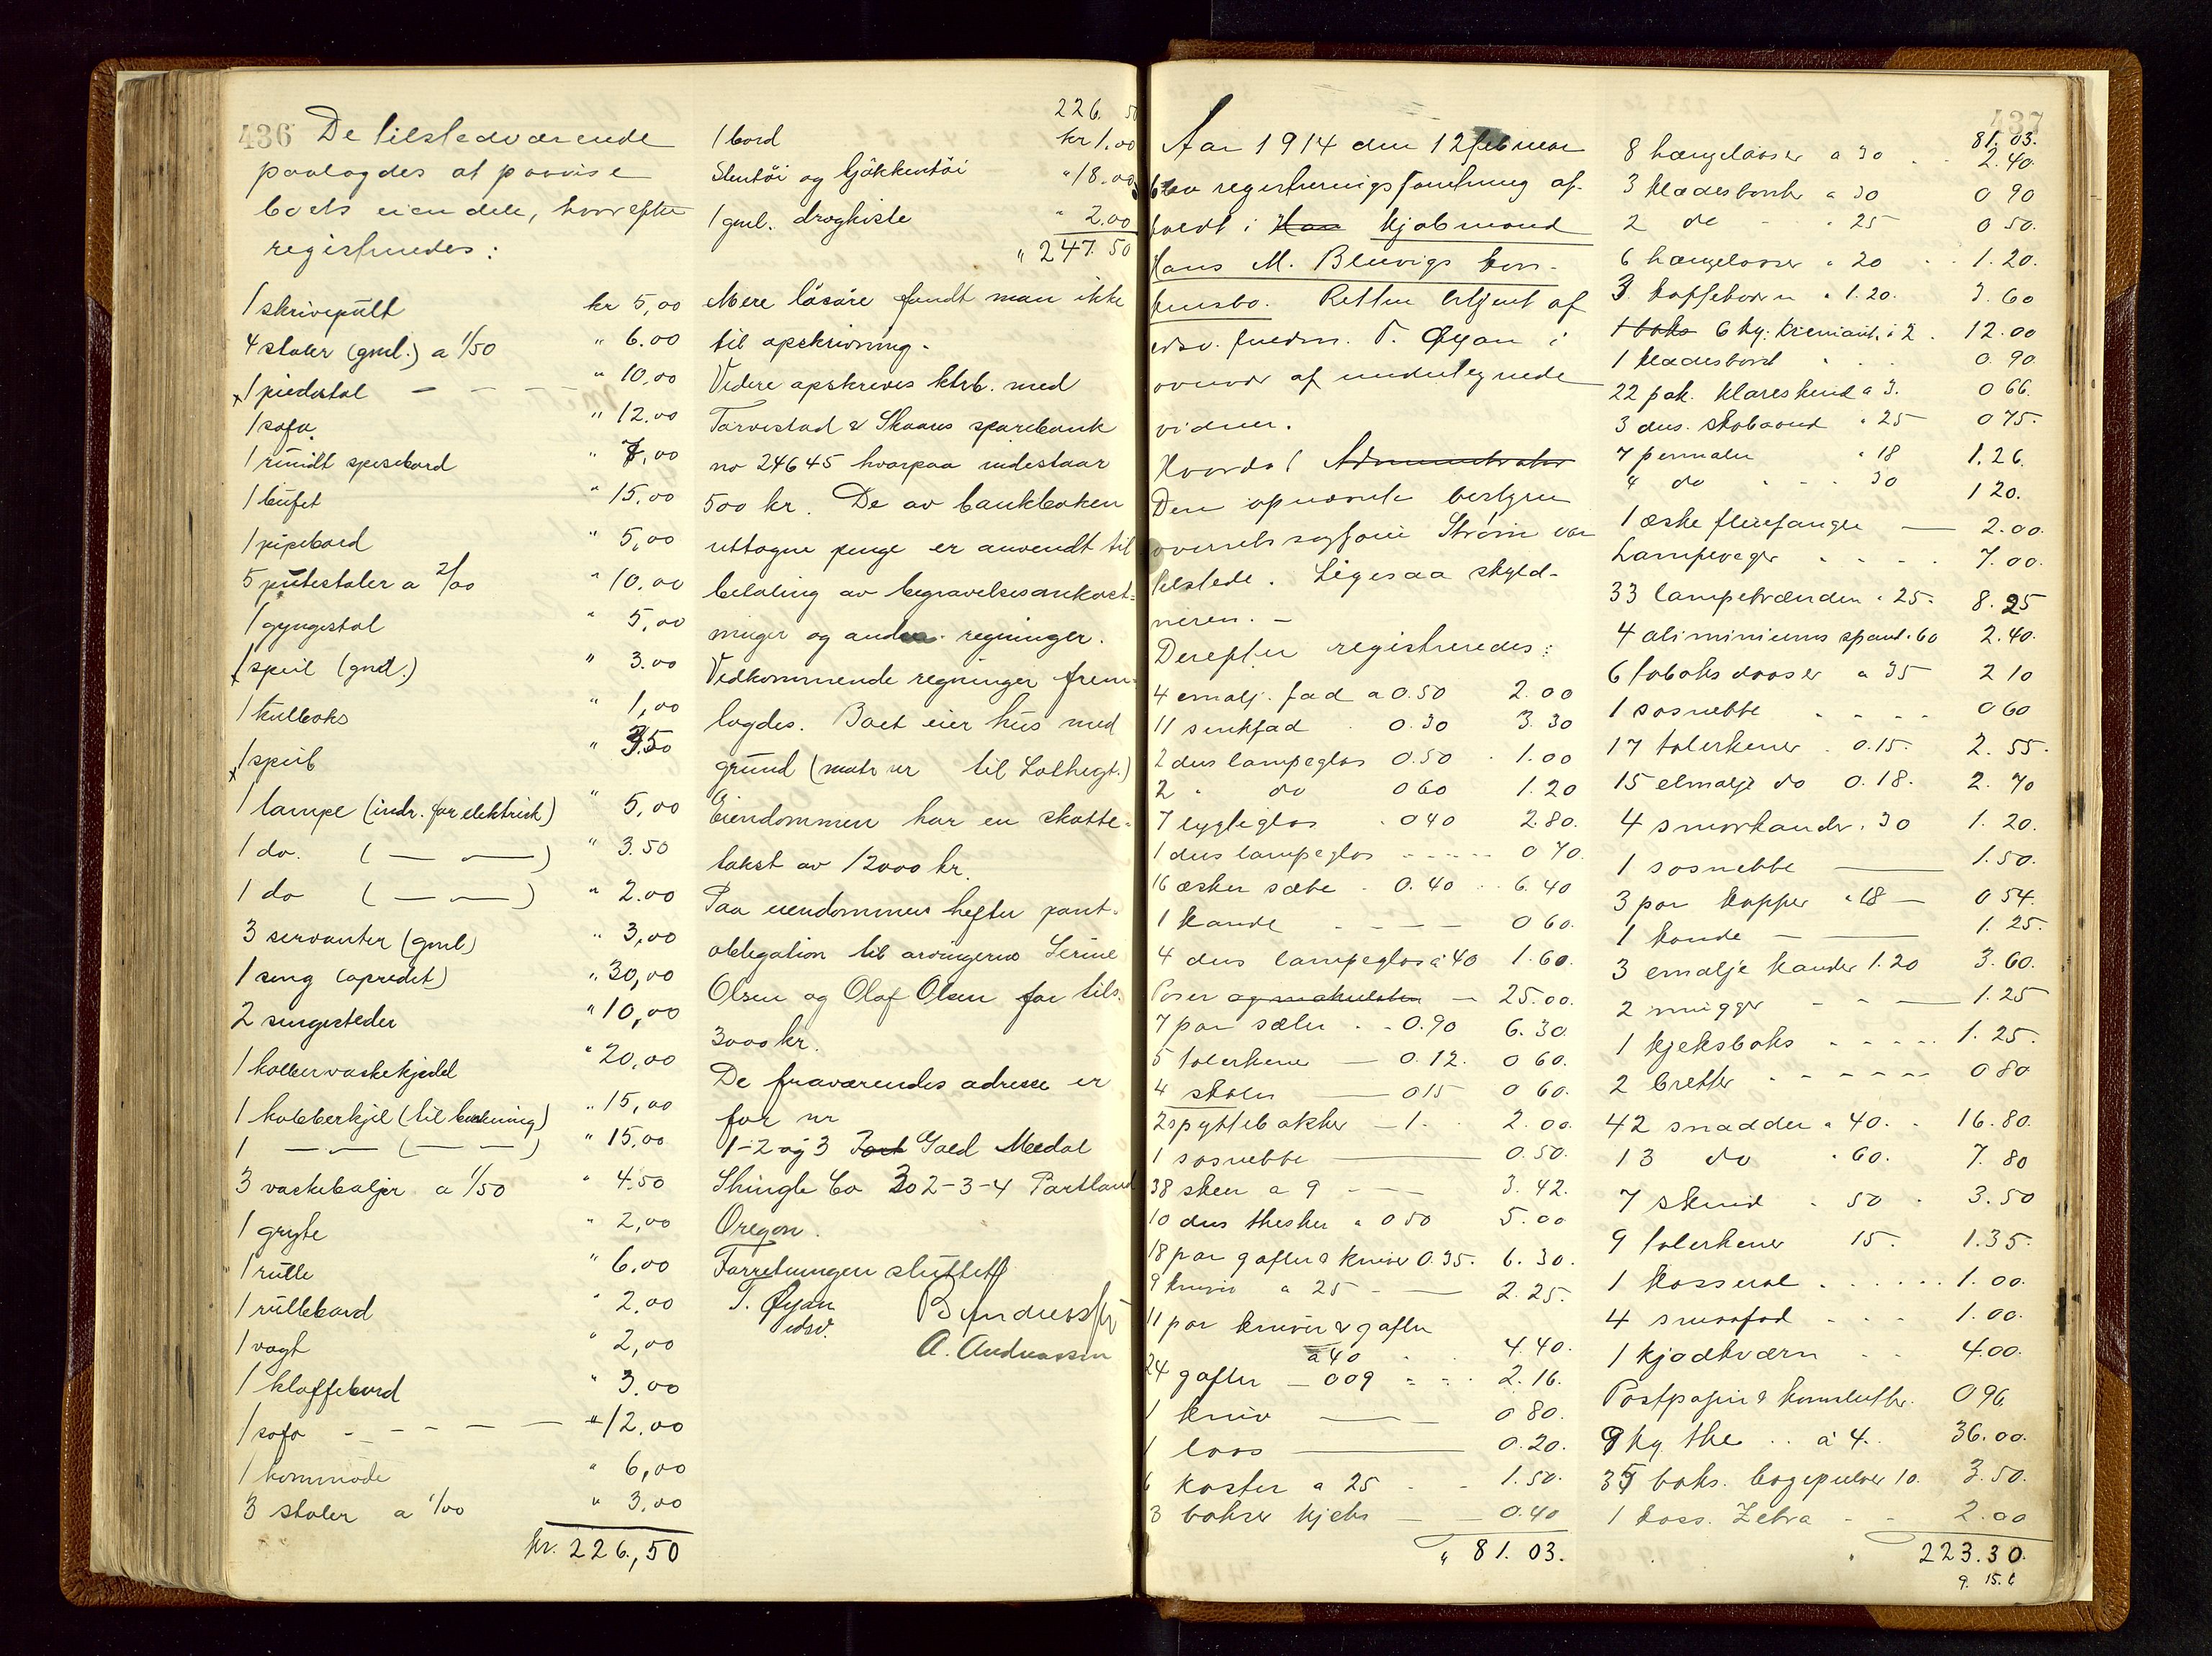 436
De tilstedværende
paalagdes at paavise
boets eiendele, hvorefter
registreredes:
1 skrivepult kr 5,00
4 stoler (gml.) a 1/50 " 6.00
x 1 piedestal — — — " 10,00
1 sofa " 12.00
1 rundt spisebord " 7,00
1 bufet " 15.00
1 pipebord " 5,00
5 putestoler a 2/00 " 10.00
1 gyngestol " 5,00
x 1 speil (gml.) " 3.00
1 kulboks " 1,00
x 1 speil " 3.50
1 lampe (indr. for elektrisk) " 5,00
1 do. ( — — ) " 3.50
1 do ( — — ) " 2.00
3 servanter (gml) " 3,00
1 seng (opredet) " 30,00
2 sengesteder " 10,00
1 kobbervaskekjedel " 20,00
1 kobberkjel (til bakning) " 15,00
1 — — ( — — ) " 15.00
3 vaskebaljer a 1/50 " 4.50
1 gryte " 2,00
1 rulle " 6.00
1 rullebord " 2,00
1 vogt " 2,00
1 klaffebord " 3.00
1 sofa - - - — — " 12,00
1 kommode " 6,00
3 stoler a 1/00 " 3,00
kr. 226,50
226. 50
1 bord kr 1.00
Stentöi og kjökkentöi " 18.00
1 gml. dragkiste " 2.00
" 247.50
Mere lösöre fandt man ikke
til opskrivning.
Videre opskreves ktrb. med
Torvestad & Skaare sparebank
no 24645 hvorpaa indestaar
500 kr. De av bankboken
uttagne penge er anvendt til
betaling av begravelsesomkost-
ninger og andre regninger.
Vedkommende regninger frem-
lagdes. Boet eier hus med
grund (matr nr til Lothegt.)
Eiendommen har en skatte-
takst av 12000 kr.
Paa eiendommen hefter pant-
obligation til arvingerne Serine
Olsen og Olaf Olsen for tils.
3000 kr.
De fraværendes adresse er
for nr
1-2 og 3 Gold Medal
Shingle Co 302-3-4 Portland
Oregon.
Forretningen sluttet
T. Øyan
edsv.
A. Andreassen
437
Aar 1914 den 12 februar
blev registreringsforretning af-
holdt i Haa kjøbmand
Hans M. Bleivigs kon-
kursbo. Retten betjent af
edsv. fuldm. T. Øyan i
overvær af undertegnede
vidner.
Hvorda! Administrator
Den opnævnte bestyrer
overretssagfører Strøm var
tilstede. Ligesaa skyld-
neren. —
Derefter registreredes:
4 emalj. fad a 0.50 2.00
11 sinkfad 0.30 3.30
2 dus lampeglas 0.50 1.00
2 " do 0 60 1.20
7 lygteglas 0 40 2.80.
1 dus lampeglas ----- 0 70.
16 æsker sæbe 0.40 6.40
1 kande - - - 0 60.
4 dus lampeglas a 40 1.60.
Poser og makulatur — 25.00.
7 par sæler - 0.90 6.30
5 tolerkener — 0.12. 0 60.
4 skoler — 0 15 0 60.
2 spyttebakker — 1. 2.00.
1 sosnebbe — 0.50.
38 skeer a 9 — 3.42.
10 dus theskeer a 0 50 5.00
18 par gafler & kniver 0.35. 6.30.
9 kniver a 25 — 2.25.
11 par kniver & gafler
a 40 4.40.
24 gafler — 009 2.16.
1 kniv — 0 80.
1 laas — 0.20.
6 koster a 25 - 1.50.
3 bokser kjeks — 0.40
" 81.03.
81.03.
8 hængelaaser a 30 2.40.
3 klædesbørster a 30 0 90
2 do " 25 0 50.
6 hængelaaser " 20 1.20.
3 kaffebørn " 1.20. 3.60
1 boks 6 kg. i 2 12.00
1 klædesbørst 0.90
22 pak. klareskind a 3. 0 66.
3 dus. skobaand " 25 0 75.
7 permaler " 18 1.26.
4 do " 30 1 20.
1 æske fluefanger — 2.00.
Lampevæger - - - 7.00.
33 lampebrænder " 25. 8.25
4 aliminiums spand " 60 2.40.
6 tobaksdaaser a 35 2 10
1 sosnebbe - - - - 0 60
17 tolerkener 0.15. 2.55.
15 elmalje do 0.18. 2.70
4 smørkander " 30 1.20.
1 sosnebbe — 1.50.
3 par kopper " 18 — 0 54.
1 kande — — 1.25.
3 emalje kander 1.20 3.60.
2 mugger - - — 1.25
1 kjeksboks - - - - - 1.25.
2 bretter - - - - - - 0 80
42 snadder a 40. 16.80.
13 do " 60. 7.80
7 skind " 50 3.50
9 tolerkener 15. 1.35.
1 kasserol . . . . . . 1.00.
4 smaafad - - - 1.00.
1 kjødkværn - - 4.00.
Postpapir & konvolutter. 0 96
9 kg. the .. a 4. 36.00.
35 boks. bagepulver 10. 3.50.
1 kass. Zebra - - 2.00
" 223.30.